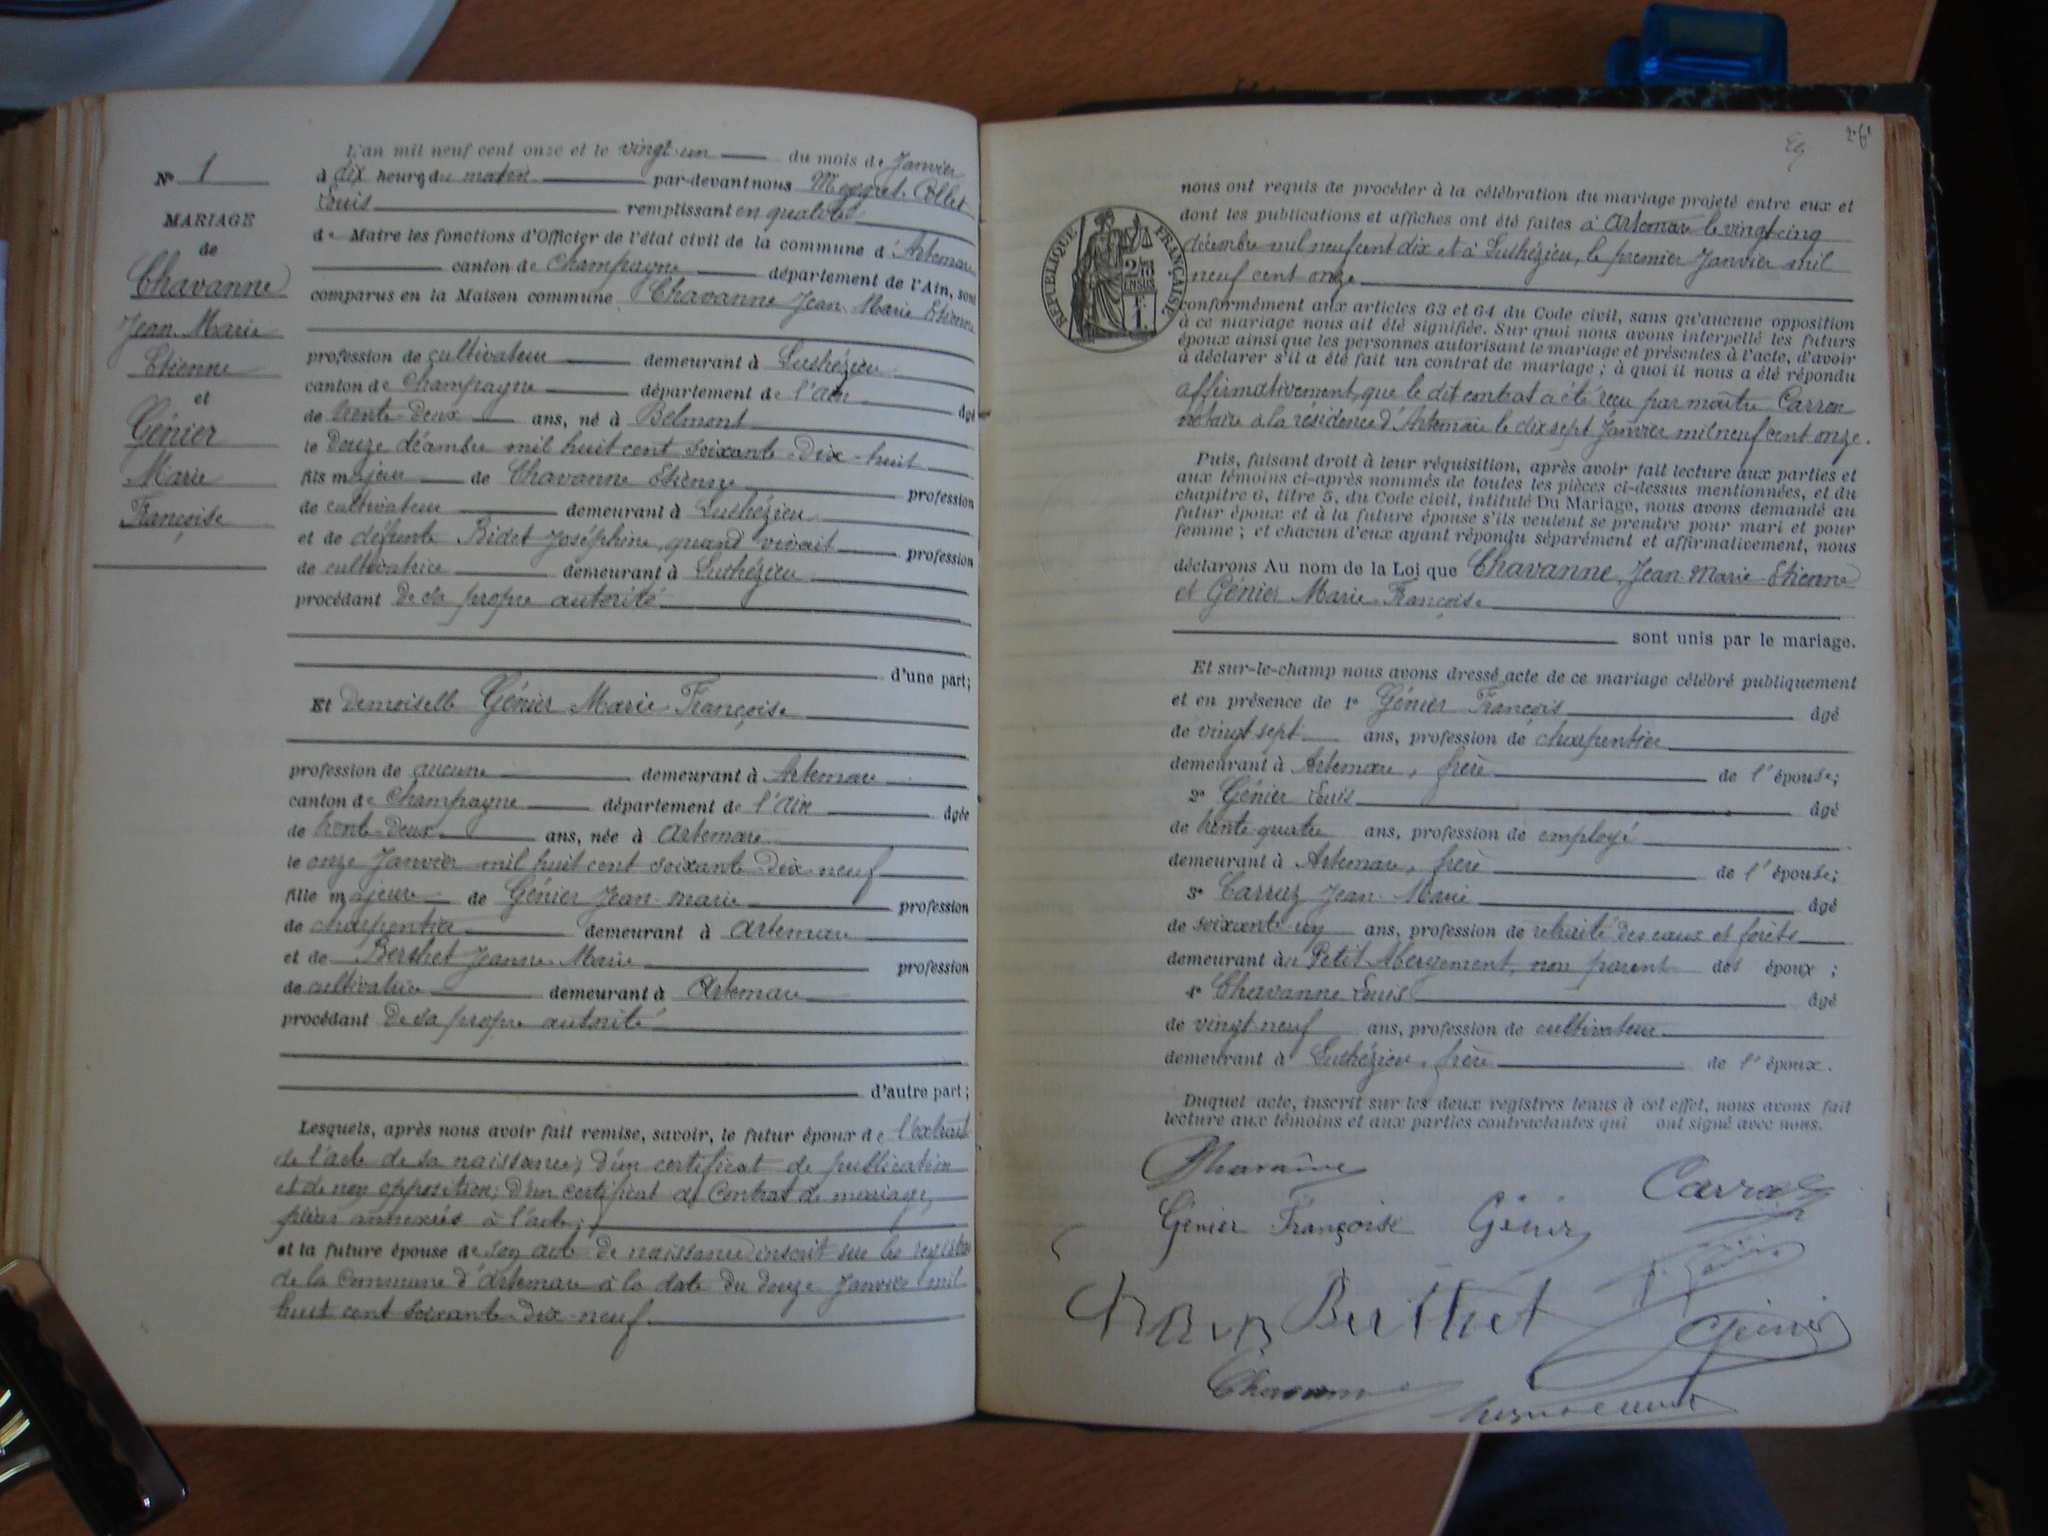 N° 1
MARIAGE
de
Chavanne
Jean-Marie
Etienne
et
Génier
Marie
Françoise
L'an mil neuf cent onze et le vingt-un du mois de Janvier
à dix heures du matin par-devant nous Meygret-Collet
Louis remplissant en qualité
de Maire les fonctions d'Officier de l'état civil de la commune d'Artemare
canton de Champagne département de l'Ain, sont
comparus en la Maison commune Chavanne Jean-Marie Etienne
profession de cultivateur demeurant à Luthézieu
canton de Champagne département de l'Ain âgé
de trente-deux ans, né à Belmont
le douze décembre mil huit cent soixante-dix-huit
fils majeur de Chavanne Etienne profession
de cultivateur demeurant à Luthézieu
et de défunte Bidet Joséphine, quand vivait profession
de cultivatrice demeurant à Luthézieu
procédant de sa propre autorité
d'une part;
Et Demoiselle Génier Marie-Françoise
profession de aucune demeurant à Artemare
canton de Champagne département de l'Ain âgée
de trente-deux ans, née à Artemare
le onze Janvier mil huit cent soixante-dix-neuf
fille majeure de Génier Jean-Marie profession
de charpentier demeurant à Artemare
et de Berthet Jeanne-Marie profession
de cultivatrice demeurant à Artemare
procédant de sa propre autorité
d'autre part;
Lesquels, après nous avoir fait remise, savoir, le futur époux de l'extrait
de l'acte de sa naissance; d'un certificat de publication
et de non opposition; d'un certificat de contrat de mariage,
pièces annexées à l'acte;
et la future épouse de son acte de naissance inscrit sur les registres
de la commune d'Artemare à la date du douze Janvier mil
huit cent soixante-dix-neuf.
26
RÉPUBLIQUE FRANÇAISE
nous ont requis de procéder à la célébration du mariage projeté entre eux et
dont les publications et affiches ont été faites à Artemare le vingt-cinq
décembre mil neuf cent dix et à Luthézieu, le premier Janvier mil
neuf cent onze
conformément aux articles 63 et 64 du Code civil, sans qu'aucune opposition
à ce mariage nous ait été signifiée. Sur quoi nous avons interpellé les futurs
époux ainsi que les personnes autorisant le mariage et présentes à l'acte, d'avoir
à déclarer s'il a été fait un contrat de mariage; à quoi il nous a été répondu
affirmativement, que le dit contrat a été reçu par maître Carron
notaire à la résidence d'Artemare le dix sept Janvier mil neuf cent onze.
Puis, faisant droit à leur réquisition, après avoir fait lecture aux parties et
aux témoins ci-après nommés de toutes les pièces ci-dessus mentionnées, et du
chapitre 6, titre 5, du Code civil, intitulé Du Mariage, nous avons demandé au
futur époux et à la future épouse s'ils veulent se prendre pour mari et pour
femme; et chacun d'eux ayant répondu séparément et affirmativement, nous
déclarons Au nom de la Loi que Chavanne Jean-Marie-Etienne
et Génier Marie-Françoise
sont unis par le mariage.
Et sur-le-champ nous avons dressé acte de ce mariage célébré publiquement
et en présence de 1° Génier François âgé
de vingt sept ans, profession de charpentier
demeurant à Artemare, frère de l'épouse;
2° Génier Louis âgé
de trente-quatre ans, profession de employé
demeurant à Artemare, frère de l'épouse;
3° Carraz Jean-Marie âgé
de soixante-un ans, profession de retraité des eaux et forêts
demeurant au Petit Abergement, non parent des époux;
4° Chavanne Louis âgé
de vingt-neuf ans, profession de cultivateur
demeurant à Luthézieu, frère de l'époux.
Duquel acte, inscrit sur les deux registres tenus à cet effet, nous avons fait
lecture aux témoins et aux parties contractantes qui ont signé avec nous.
Chavanne
Carraz
Génier Françoise Génier
Berthet
Génier
Chavanne